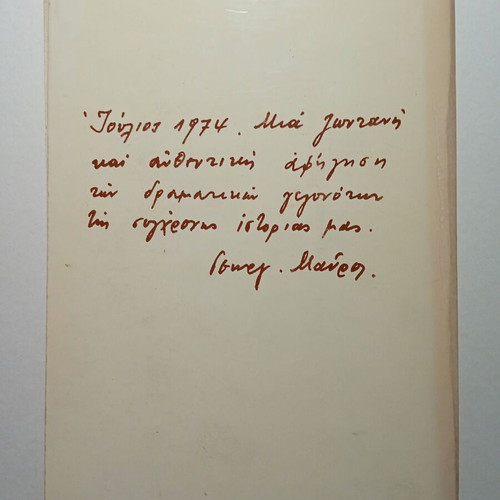 Ἰούλιος 1974. Μιά ζωντανή
καί αὐθεντική ἀφήγηση
τῶν δραματικῶν γεγονότων
τῆς σύγχρονης ἱστορίας μας.
Γεωργ. Μαῦρος.